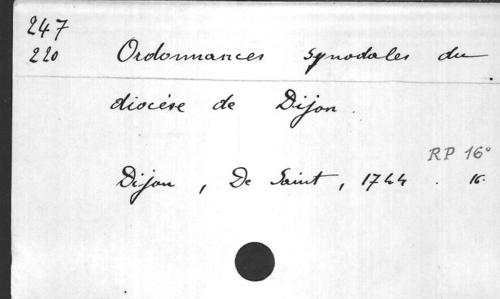 247
220 Ordonnances synodales du
diocèse de Dijon.
RP 16°
Dijon, De Saint, 1744. 16.